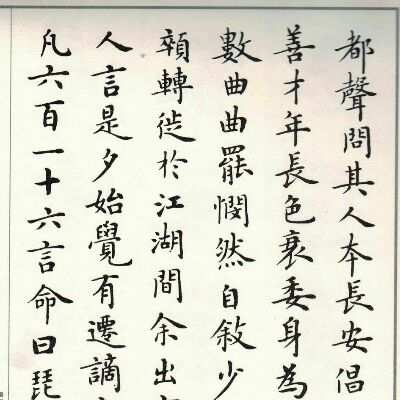 都聲問其人本長安倡
善才年長色衰委身為
數曲曲罷憫然自敘少
顇轉徙於江湖間余出
人言是夕始覺有遷謫
凡六百一十六言命曰琵